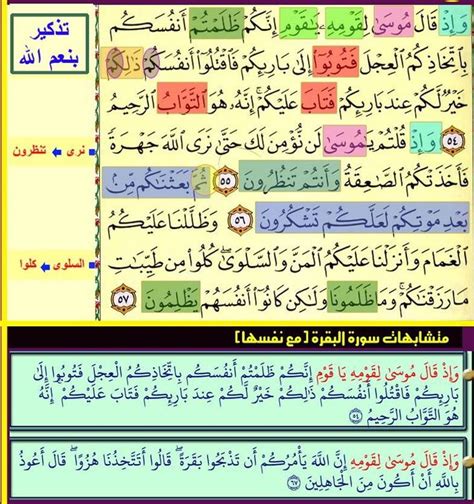 تذكير
بنعم الله
وَإِذْ قَالَ مُوسَىٰ لِقَوْمِهِ يَٰقَوْمِ إِنَّكُمْ ظَلَمْتُمْ أَنفُسَكُم
بِاتِّخَاذِكُمُ الْعِجْلَ فَتُوبُوا إِلَىٰ بَارِئِكُمْ فَاقْتُلُوا أَنفُسَكُمْ ذَٰلِكُمْ
خَيْرٌ لَّكُمْ عِندَ بَارِئِكُمْ فَتَابَ عَلَيْكُمْ إِنَّهُ هُوَ التَّوَّابُ الرَّحِيمُ
٥٤ وَإِذْ قُلْتُمْ يَٰمُوسَىٰ لَن نُّؤْمِنَ لَكَ حَتَّىٰ نَرَى اللَّهَ جَهْرَةً
نرى ← تنظرون
فَأَخَذَتْكُمُ الصَّٰعِقَةُ وَأَنتُمْ تَنظُرُونَ ٥٥ ثُمَّ بَعَثْنَٰكُم مِّنۢ
بَعْدِ مَوْتِكُمْ لَعَلَّكُمْ تَشْكُرُونَ ٥٦ وَظَلَّلْنَا عَلَيْكُمُ
الْغَمَامَ وَأَنزَلْنَا عَلَيْكُمُ الْمَنَّ وَالسَّلْوَىٰ كُلُوا مِن طَيِّبَٰتِ
السلوى ← كلوا
مَا رَزَقْنَٰكُمْ وَمَا ظَلَمُونَا وَلَٰكِن كَانُوا أَنفُسَهُمْ يَظْلِمُونَ ٥٧
متشابهات سورة البقرة (مع نفسها)
وَإِذْ قَالَ مُوسَىٰ لِقَوْمِهِ يَا قَوْمِ إِنَّكُمْ ظَلَمْتُمْ أَنفُسَكُم بِاتِّخَاذِكُمُ الْعِجْلَ فَتُوبُوا إِلَىٰ
بَارِئِكُمْ فَاقْتُلُوا أَنفُسَكُمْ ذَٰلِكُمْ خَيْرٌ لَّكُمْ عِندَ بَارِئِكُمْ فَتَابَ عَلَيْكُمْ إِنَّهُ
هُوَ التَّوَّابُ الرَّحِيمُ ٥٤
وَإِذْ قَالَ مُوسَىٰ لِقَوْمِهِ إِنَّ اللَّهَ يَأْمُرُكُمْ أَن تَذْبَحُوا بَقَرَةً قَالُوا أَتَتَّخِذُنَا هُزُوًا قَالَ أَعُوذُ
بِاللَّهِ أَنْ أَكُونَ مِنَ الْجَاهِلِينَ ٦٧